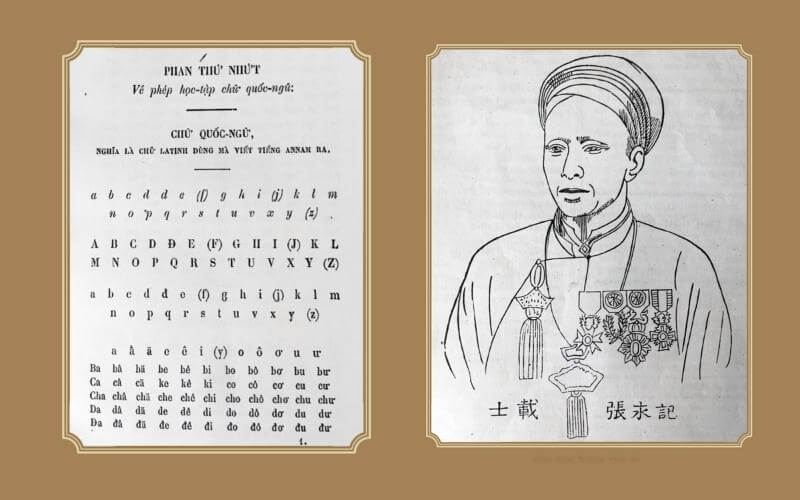 PHAN THỨ NHỨT
Về phép học-tập chữ quốc-ngữ:
CHỮ QUỐC-NGỮ,
NGHĨA LÀ CHỮ LATINH DÙNG MÀ VIẾT TIẾNG ANNAM RA.
a b c d đ e (f) g h i (j) k l m
n o p q r s t u v x y (z)
A B C D Đ E (F) G H I (J) K L
M N O P Q R S T U V X Y (Z)
a b c d đ e (f) g h i (j) k l m
n o p q r s t u v x y (z)
a â ă e ê i (y) o ô ơ u ư
Ba bâ bă be bê bi bo bô bơ bu bư
Ca câ că ke kê ki co cô cơ cu cư
Cha châ chă che chê chi cho chô chơ chu chư
Da dâ dă de dê di do dô dơ du dư
Đa đâ đă đe đê đi đo đô đơ đu đư
1.
士載 張永記